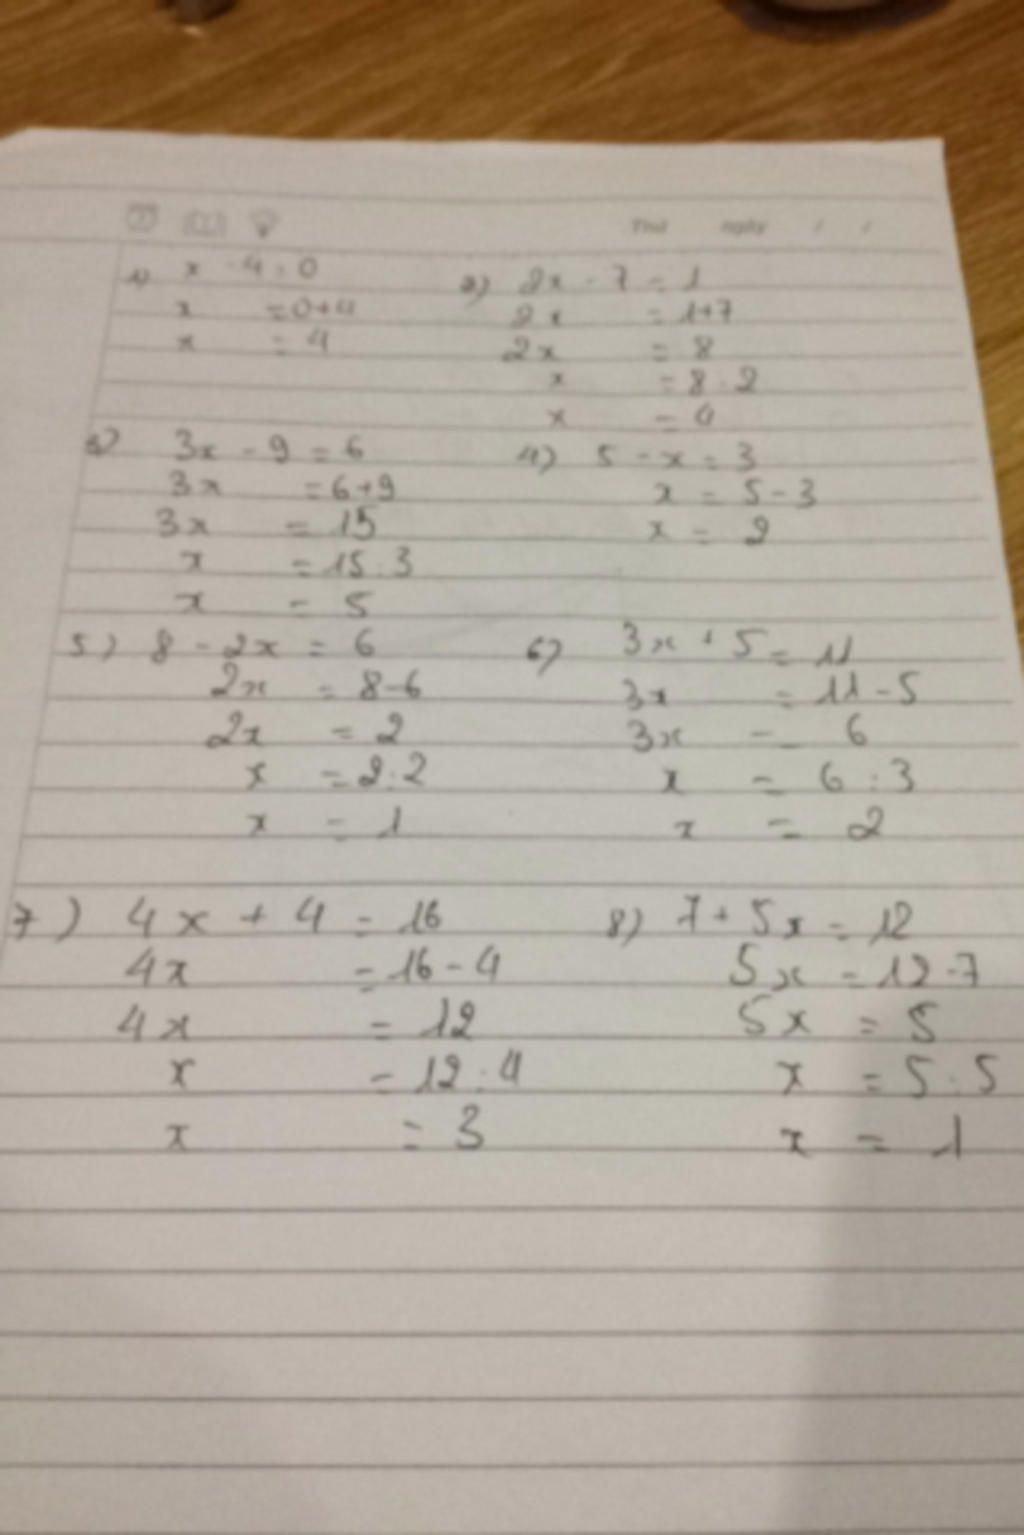 Thứ ngày / /
1) x - 4 = 0
x = 0+4
x = 4
2) 2x - 7 = 1
2x = 1+7
2x = 8
x = 8:2
x = 4
3) 3x - 9 = 6
3x = 6+9
3x = 15
x = 15:3
x = 5
4) 5 - x = 3
x = 5-3
x = 2
5) 8 - 2x = 6
2x = 8-6
2x = 2
x = 2:2
x = 1
6) 3x + 5 = 11
3x = 11-5
3x = 6
x = 6:3
x = 2
7) 4x + 4 = 16
4x = 16-4
4x = 12
x = 12:4
x = 3
8) 7+5x = 12
5x = 12-7
5x = 5
x = 5:5
x = 1